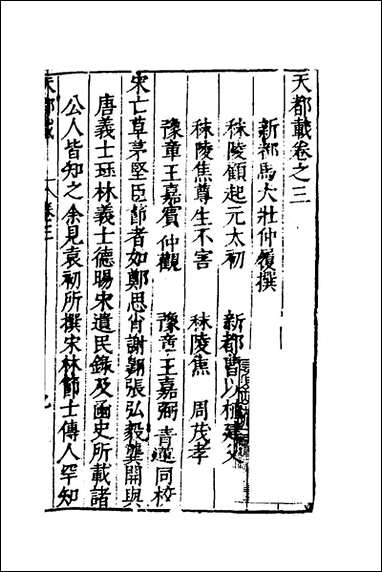 天都載卷之三
新都馬大壯仲履撰
秣陵顧起元太初 新都曹以植建父
秣陵焦尊生不害 秣陵焦 周茂孝
豫章王嘉賓仲觀 豫章王嘉弼青蓮同校
宋亡草茅堅臣節者如鄭思肖謝翱張弘毅龔開與
唐義士珏林義士德暘宋遺民錄及函史所載諸
公人皆知之余見袁初所撰宋林節士傳人罕知
天都載 卷三